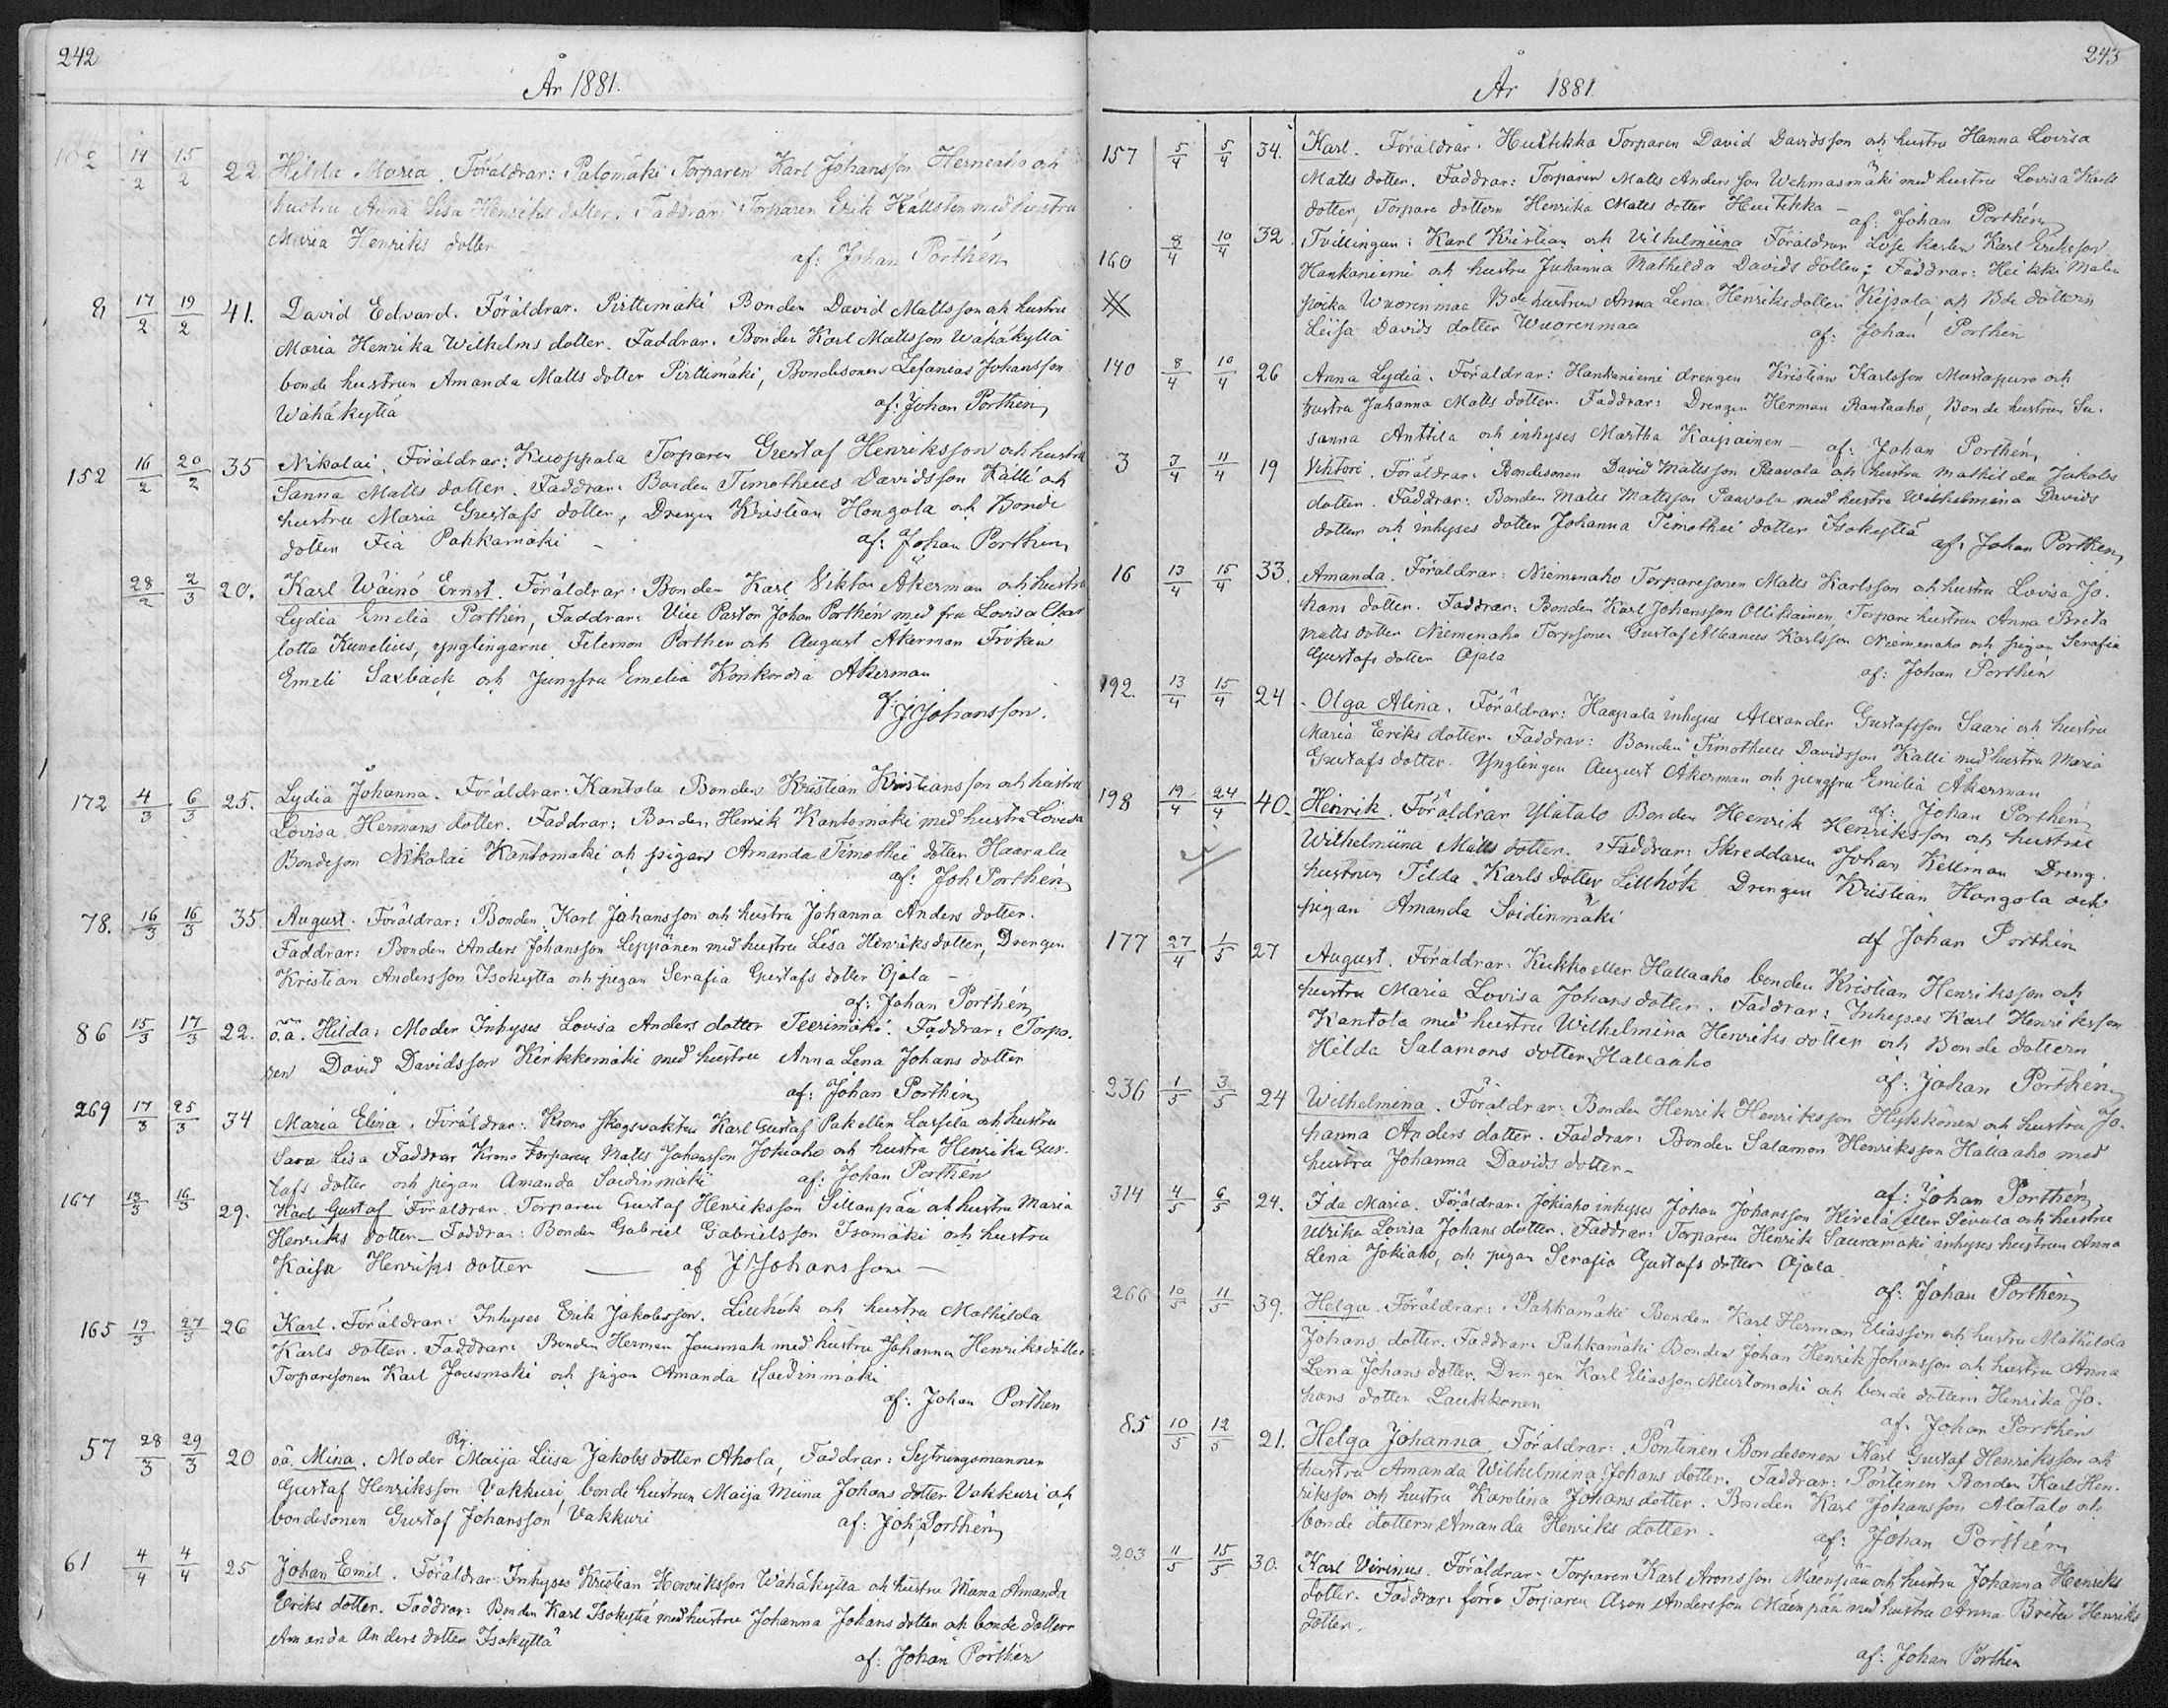 242
År 1881.
182 14/2 15/2 22 Hilda Maria. Föräldrar: Palomäki Torparen Karl Johansson Herneaho och
hustru Anna Lisa Henriks dotter. Faddrar: Torparen Erik Hällsten med hustru
Maria Henriks dotter
af: Johan Porthén
8 17/2 19/2 41. David Edvard. Föräldrar. Pirttimäki Bonden David Mattsson och hustru
Maria Henrika Wilhelms dotter. Faddrar. Bonden Karl Mattsson Wähäkyttä
bonde hustrun Amanda Matts dotter Pirttimäki, Bondesonen Johansson
Wähäkyttä af: Johan Porthén
152 16/2 20/2 35 Nikolai. Föräldrar: Kuoppala Torparen Gustaf Henriksson och hustru
Sanna Matts dotter. Faddrar: Bonden Timotheus Davidsson Källi och
hustru Maria Gustafs dotter, Drengen Kristian Hongola och Bonde
dottern Fia Pahkamäki – af: Johan Porthén
28/2 2/3 20. Karl Wäinö Ernst. Föräldrar: Bonden Karl Viktor Åkerman och hustru
Lydia Emelia Porthén, Faddrar: Vice Pastor Johan Porthén med fru Lovisa Char
lotta Kunelius, ynglingarne Filemon Porthen och August Åkerman Fröken
Emeli Saxbäck och Jungfru Emelia Konkordia Akerman
J Johansson.
172 4/3 6/3 25. Lydia Johanna. Föräldrar: Kantola Bonden Kristian Kristiansson och hustru
Lovisa Hermans dotter. Faddrar: Bonden Henrik Kantomäki med hustru Lovisa
Bondeson Nikolai Kantomäki och pigan Amanda Timothei dotter Haarala
af: Joh Porthén
78. 16/3 16/3 35 August. Föräldrar: Bonden Karl Johansson och hustru Johanna Anders dotter.
Faddrar: Bonden Anders Johansson Leppänen med hustru Lisa Henriks dotter, Drengen
Kristian Andersson Isokyttä och pigan Serafia Gustafs dotter Ojala –
af: Johan Porthén
86 15/3 17/3 22. o.ä. Hilda: Moder Inhyses Lovisa Anders dotter Teerimäki. Faddrar: Torpa.
ren David Davidsson Kirkkomäki med hustru Anna Lena Johans dotter
af: Johan Porthén
269 17/3 25/3 34 Maria Elina. Föräldrar: Krono Skogsvakten Karl Gustaf Pakellen Lassila och hustru
Sara Lisa Faddrar Krono Torparen Matts Johansson Jokiaho och hustru Henrika Gus.
tafs dotter och pigan Amanda Soidinmäki af: Johan Porthén
167 13/3 16/3 29. Karl Gustaf Föräldrar. Torparen Gustaf Henriksson Sillanpää och hustru Maria
Henriks dotter – Faddrar: Bonden Gabriel Gabrielsson Isomäki och hustru
Kaisa Henriks dotter — af J Johansson –
165 19/3 27/3 26 Karl. Föräldrar: Inhyses Erik Jakobsson. Lillhök och hustru Mathilda
Karls dotter. Faddrar: Bonden Herman Jousmak med hustru Johanna Henriks dotter
Torparesonen Karl Jousmäki och pigan Amanda Soidinmäki
af: Johan Porthen
57 28/3 29/3 20 oä. Mina. Moder Pig. Maija Liisa Jakobs dotter Ahola, Faddrar: Sytningsmannen
Gustaf Henriksson Vakkuri, bonde hustrun Maija Miina Johans dotter Vakkuri och
bondesonen Gustaf Johansson Vakkuri af: Joh, Porthén
61 4/4 4/4 25 Johan Emil. Föräldrar: Inhyses Kristian Henriksson Wähäkyttä och hustru Mana Amanda
Eriks dotter. Faddrar: Bonden Karl Isokyttä med hustru Johanna Johans dotter och bonde dottern
Amanda Anders dotter Isokyttä
af: Johan Porthén
243
År 1881
157 5/4 5/4 34. Karl. Föräldrar. Huttikka Torparen David Davidsson och hustru Hanna Lovisa
Matts dotter. Faddrar: Torparen Matts Andersson Wehmasmäki med hustru Lovisa Karls
dotter, Torpare dottern Henrika Matts dotter Huttikka –
af: Johan Porthén
160 8/4 10/4 32. Tvillingar: Karl Kristian och Vilhelmiina Föräldrar Löse karlen Karl Eriksson
Hankaniemi och hustru Johanna Mathilda Davids dotter; Faddrar: Heikki Malm
poika Wuorenmaa Bde hustrun Anna Lena Henriksdotter Kijpola, och Bde dottern
Liisa Davids dotter Wuorenmaa af: Johan Porthén
140 8/4 10/4 26 Anna Lydia. Föräldrar: Hankaniemi drengen Kristian Karlsson Mustapuro och
hustru Johanna Matts dotter. Faddrar: Drengen Herman Rantaaho, Bonde hustrun Su.
sanna Anttila och inhyses Martha Kaipainen – af: Johan Porthén
3 7/4 11/4 19 Viktori. Föräldrar. Bondesonen David Mattsson Paavola och hustru Mathilda Jakobs
dotter. Faddrar: Bonden Matts Mattsson Paavola med hustru Wilhelmina Davids
dotter och inhyses dotter Johanna Timothei dotter Isokyttä
af: Johan Porthén
16 13/4 15/4 33. Amanda. Föräldrar: Niemenaho Torparesonen Matts Karlsson och hustru Lovisa Jo.
hans dotter. Faddrar: Bonden Karl Johansson Ollikainen, Torpare hustrun Anna Breta
Matts dotter Niemenaho Torpsonen Gustaf Albanus Karlsson Niemenaho och pigan Serafia
Gustafs dotter Ojala af: Johan Porthén
192. 13/4 15/4 24 Olga Alina. Föräldrar: Haapala inhyses Alexander Gustafsson Saari och hustru
Maria Eriks dotter. Faddrar: Bonden Timotheus Davidsson Kalli med hustru Maria
Gustafs dotter. Ynglingen August Åkerman och jungfru Emilia Åkerman
af: Johan Porthén
198 19/4 24/4 40. Heinrik. Föräldrar Ylitalo Bonden Henrik Henriksson och hustru
Wilhelmiina Matts dotter. Faddrar: Skreddaren Johan Kellman Dreng.
hustrun Tilda Karls dotter Lillhök Drengen Kristian Hongola och
pigan Amanda Soidinmäki
af Johan Porthén
177 27/4 1/5 27 August. Föräldrar: Kukko eller Hallaaho bonden Kristian Henriksson och
hustru Maria Lovisa Johans dotter. Faddrar: Inhyses Karl Henriksson
Kantola med hustru Wilhelmina Henriks dotter och Bonde dottern
Hilda Salamons dotter Hallaaho
af: Johan Porthén
236 1/5 3/5 24 Wilhelmina. Föräldrar: Bonden Henrik Henriksson Hykkönen och hustru Jo.
hanna Anders dotter. Faddrar: Bonden Salamon Henriksson Hallaaho med
hustru Johanna Davids dotter –
af: Johan Porthén
314 4/5 6/5 24. Ida Maria. Föräldrar. Jokiaho inhyses Johan Johansson Kivelä eller Sivula och hustru
Ulrika Lovisa Johans dotter. Faddrar: Torparen Henrik Sauramäki, inhyses hustrun Anna
Lena Jokiaho, och pigan Serafia Gustafs dotter Ojala
af: Johan Porthén
266 10/5 11/5 39. Helga. Föräldrar: Pahkamäki Bonden Karl Herman Eliasson och hustru Mathilda
Johans dotter. Faddrar. Pahkamäki Bonden Johan Henrik Johansson och hustru Anna
Lena Johans dotter. Drengen Karl Eliasson Mustomäki och bonde dottern Henrika Jo.
hans dotter Laukkonen
af. Johan Porthén
85 10/5 12/5 21. Helga Johanna. Föräldrar: Pöntinen Bondesonen Karl Gustaf Henriksson och
hustru Amanda Wilhelmina Johans dotter. Faddrar: Pöntinen Bonden Karl Hen.
riksson och hustru Karolina Johans dotter. Bonden Karl Johansson Alatalo och
bonde dottern Amanda Henriks dotter.
af: Johan Porthén
203 11/5 15/5 30. Karl Virinus. Föräldrar: Torparen Karl Aronsson Mäenpää och hustru Johanna Henriks
dotter. Faddrar: förre Torparen Aron Andersson Mäenpää med hustru Anna Brita Henriks
dotter.
af: Johan Porthén